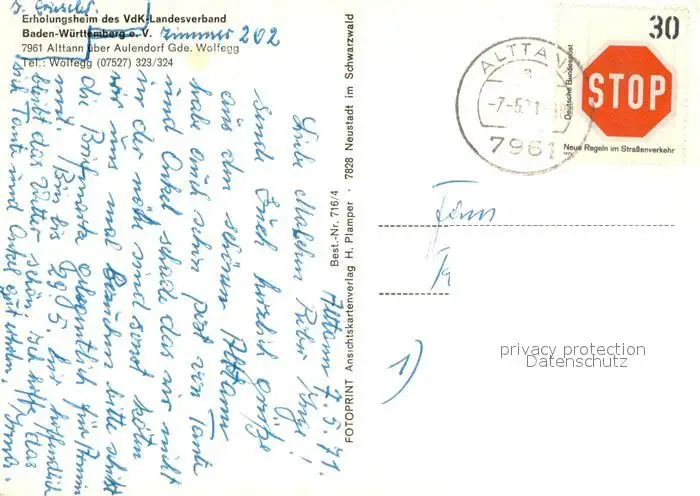 Erholungsheim des VdK-Landesverband
Baden-Württemberg e. V. Zimmer 202
7961 Alttann über Aulendorf Gde. Wolfegg
Tel.: Wolfegg (07527) 323/324
Alttann 7.5.71.
Liebe
sende Euch herzlich Grüße
aus dem schönen Alttann
habe auch schon post von Tante
und Onkel schade das wir nicht
in der nähe sind sonst
wir uns mal Besuchen bitte
die Briefmarke gelegentlich für
mit. Bin bis 29.5. hier hoffentlich
bleibt das Wetter schön. Ich hoffe das
sich Tante und Onkel gut erholen.
FOTOPRINT Ansichtskartenverlag H. Plamper · 7828 Neustadt im Schwarzwald
Best.-Nr. 716/4
ALTTANN
a
-7-5.71
7961
30
Deutsche Bundespost
STOP
Neue Regeln im Straßenverkehr
1971
Fam
1)
privacy protection
Datenschutz